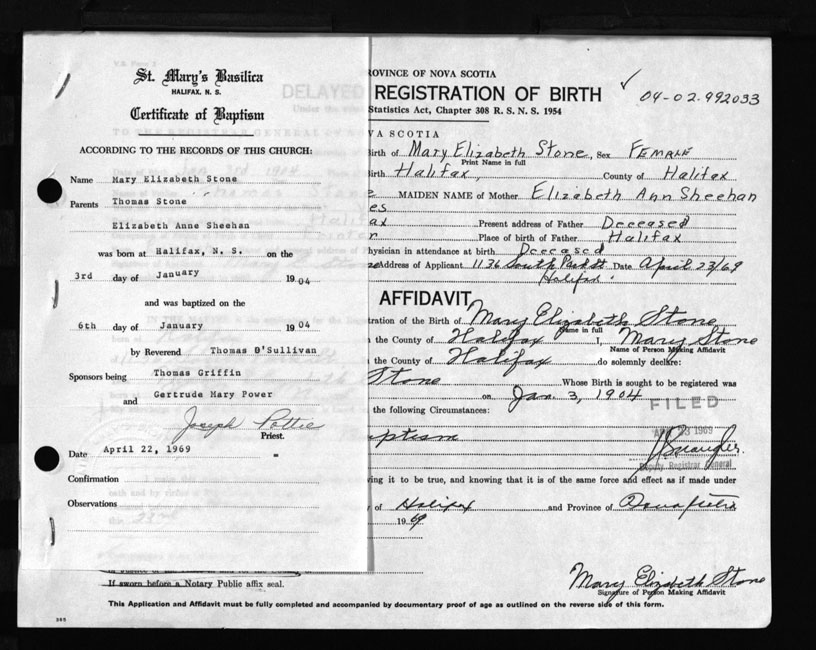 St. Mary's Basilica
HALIFAX, N. S.
Certificate of Baptism
ACCORDING TO THE RECORDS OF THIS CHURCH:
Name Mary Elizabeth Stone
Parents Thomas Stone
Elizabeth Anne Sheehan
was born at Halifax, N. S. on the
3rd day of January 1904
and was baptized on the
6th day of January 1904
by Reverend Thomas O'Sullivan
Sponsors being Thomas Griffin
and Gertrude Mary Power
Joseph Pottie
Priest.
Date April 22, 1969
Confirmation
Observations
ROVINCE OF NOVA SCOTIA
DELAYED REGISTRATION OF BIRTH
04-02-992033
Statistics Act, Chapter 308 R. S. N. S. 1954
VA SCOTIA
Birth of Mary Elizabeth Stone, Sex FEMALE
Print Name in full
Birth Halifax, County of Halifax
e MAIDEN NAME of Mother Elizabeth Ann Sheehan
es
ax Present address of Father Deceased
r Place of birth of Father Halifax
Physician in attendance at birth Deceased
Address of Applicant 1136 South Park St Date April 23/69
Halifax.
AFFIDAVIT
tration of the Birth of Mary Elizabeth Stone
Name in full
n the County of Halifax I, Mary Stone
Name of Person Making Affidavit
the County of Halifax do solemnly declare:
Stone Whose Birth is sought to be registered was
on Jan. 3, 1904
the following Circumstances:
FILED
1969
ptism
Deputy Registrar General
ving it to be true, and knowing that it is of the same force and effect as if made under
of Halifax and Province of
1969
If sworn before a Notary Public affix seal.
Mary Elizabeth Stone
Signature of Person Making Affidavit
This Application and Affidavit must be fully completed and accompanied by documentary proof of age as outlined on the reverse side of this form.